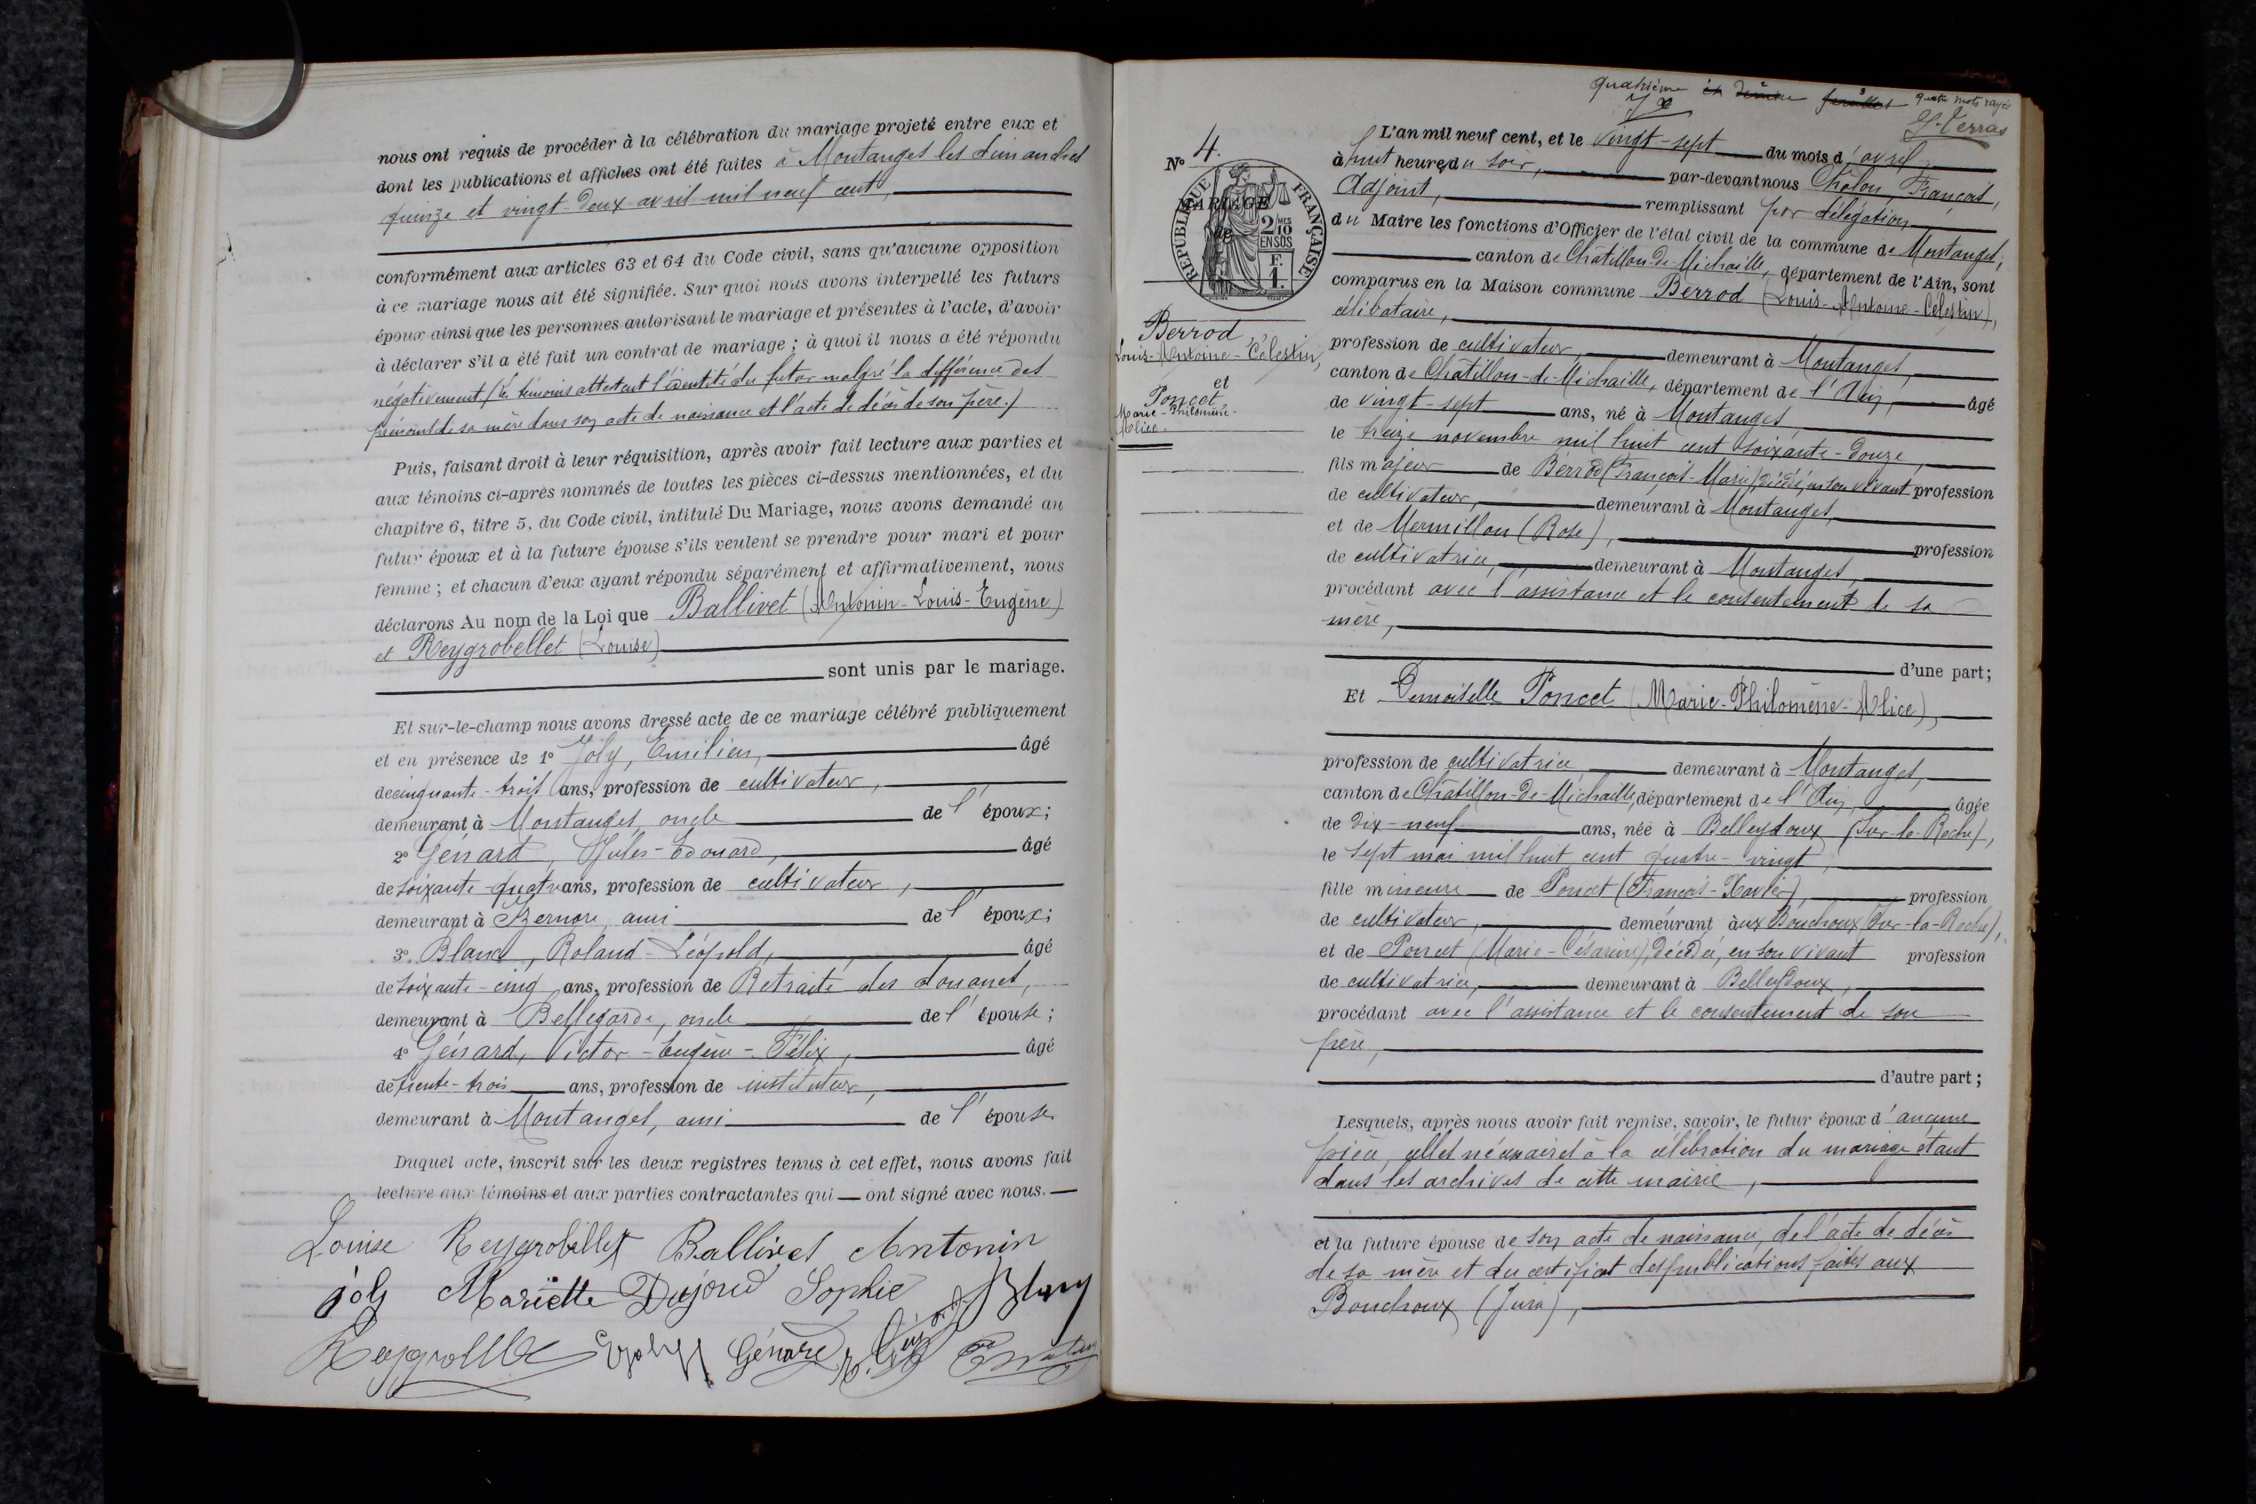 nous ont requis de procéder à la célébration du mariage projeté entre eux et
dont les publications et affiches ont été faites à Montanges les dimanches
quinze et vingt-deux avril mil neuf cent,
conformément aux articles 63 et 64 du Code civil, sans qu'aucune opposition
à ce mariage nous ait été signifiée. Sur quoi nous avons interpellé les futurs
époux ainsi que les personnes autorisant le mariage et présentes à l'acte, d'avoir
à déclarer s'il a été fait un contrat de mariage ; à quoi il nous a été répondu
négativement (les témoins attestent l'identité du futur malgré la différence des
prénoms de sa mère dans son acte de naissance et l'acte de décès de son père.)
Puis, faisant droit à leur réquisition, après avoir fait lecture aux parties et
aux témoins ci-après nommés de toutes les pièces ci-dessus mentionnées, et du
chapitre 6, titre 5, du Code civil, intitulé Du Mariage, nous avons demandé au
futur époux et à la future épouse s'ils veulent se prendre pour mari et pour
femme ; et chacun d'eux ayant répondu séparément et affirmativement, nous
déclarons Au nom de la Loi que Ballivet (Antonin-Louis-Eugène)
et Reygrobellet (Louise)
sont unis par le mariage.
Et sur-le-champ nous avons dressé acte de ce mariage célébré publiquement
et en présence de 1° Joly, Emilien, âgé
de cinquante-trois ans, profession de cultivateur,
demeurant à Montanges, oncle de l'époux ;
2° Génard, Jules-Edouard, âgé
de soixante-quatre ans, profession de cultivateur,
demeurant à Izernore, ami de l'époux ;
3° Blanc, Roland-Léopold, âgé
de soixante-cinq ans, profession de Retraité des douanes,
demeurant à Bellegarde, oncle de l'épouse ;
4° Génard, Victor-Eugène-Félix, âgé
de trente-trois ans, profession de instituteur,
demeurant à Montanges, ami de l'épouse
Duquel acte, inscrit sur les deux registres tenus à cet effet, nous avons fait
lecture aux témoins et aux parties contractantes qui ont signé avec nous.
Louise Reygrobellet Ballivet Antonin
joly Mariette Dujoud Sophie Blanc
Reygrobellet Génard
quatrième quatre mots rayés
N° 4.
MARIAGE
de
RÉPUBLIQUE FRANÇAISE
2/10 EN SUS
F. 1.
Berrod
Louis-Antoine-Célestin,
et
Poncet
Marie-Philomène-
Alice.
L'an mil neuf cent, et le vingt-sept du mois d'avril,
à huit heures du soir, par-devant nous Chalon, François,
Adjoint, remplissant par délégation
du Maire les fonctions d'Officier de l'état civil de la commune de Montanges,
canton de Châtillon-de-Michaille, département de l'Ain, sont
comparus en la Maison commune Berrod (Louis-Antoine-Célestin),
célibataire,
profession de cultivateur, demeurant à Montanges,
canton de Châtillon-de-Michaille, département de l'Ain, âgé
de vingt-sept ans, né à Montanges
le treize novembre mil huit cent soixante-douze,
fils majeur de Berrod (François-Marie), décédé, en son vivant profession
de cultivateur, demeurant à Montanges,
et de Mermillon (Rose), profession
de cultivatrice, demeurant à Montanges,
procédant avec l'assistance et le consentement de sa
mère,
d'une part ;
Et Demoiselle Poncet (Marie-Philomène-Alice),
profession de cultivatrice, demeurant à Montanges,
canton de Châtillon-de-Michaille, département de l'Ain, âgée
de dix-neuf ans, née à Belleydoux (Sur-la-Roche),
le sept mai mil huit cent quatre-vingt,
fille mineure de Poncet (François-Xavier), profession
de cultivateur, demeurant aux Bouchoux (Sur-la-Roche),
et de Poncet (Marie-Césarine), décédée, en son vivant profession
de cultivatrice, demeurant à Belleydoux,
procédant avec l'assistance et le consentement de son
père,
d'autre part ;
Lesquels, après nous avoir fait remise, savoir, le futur époux d'aucune
pièce, celles nécessaires à la célébration du mariage étant
dans les archives de cette mairie,
et la future épouse de son acte de naissance, de l'acte de décès
de sa mère et du certificat des publications faites aux
Bouchoux (Jura),